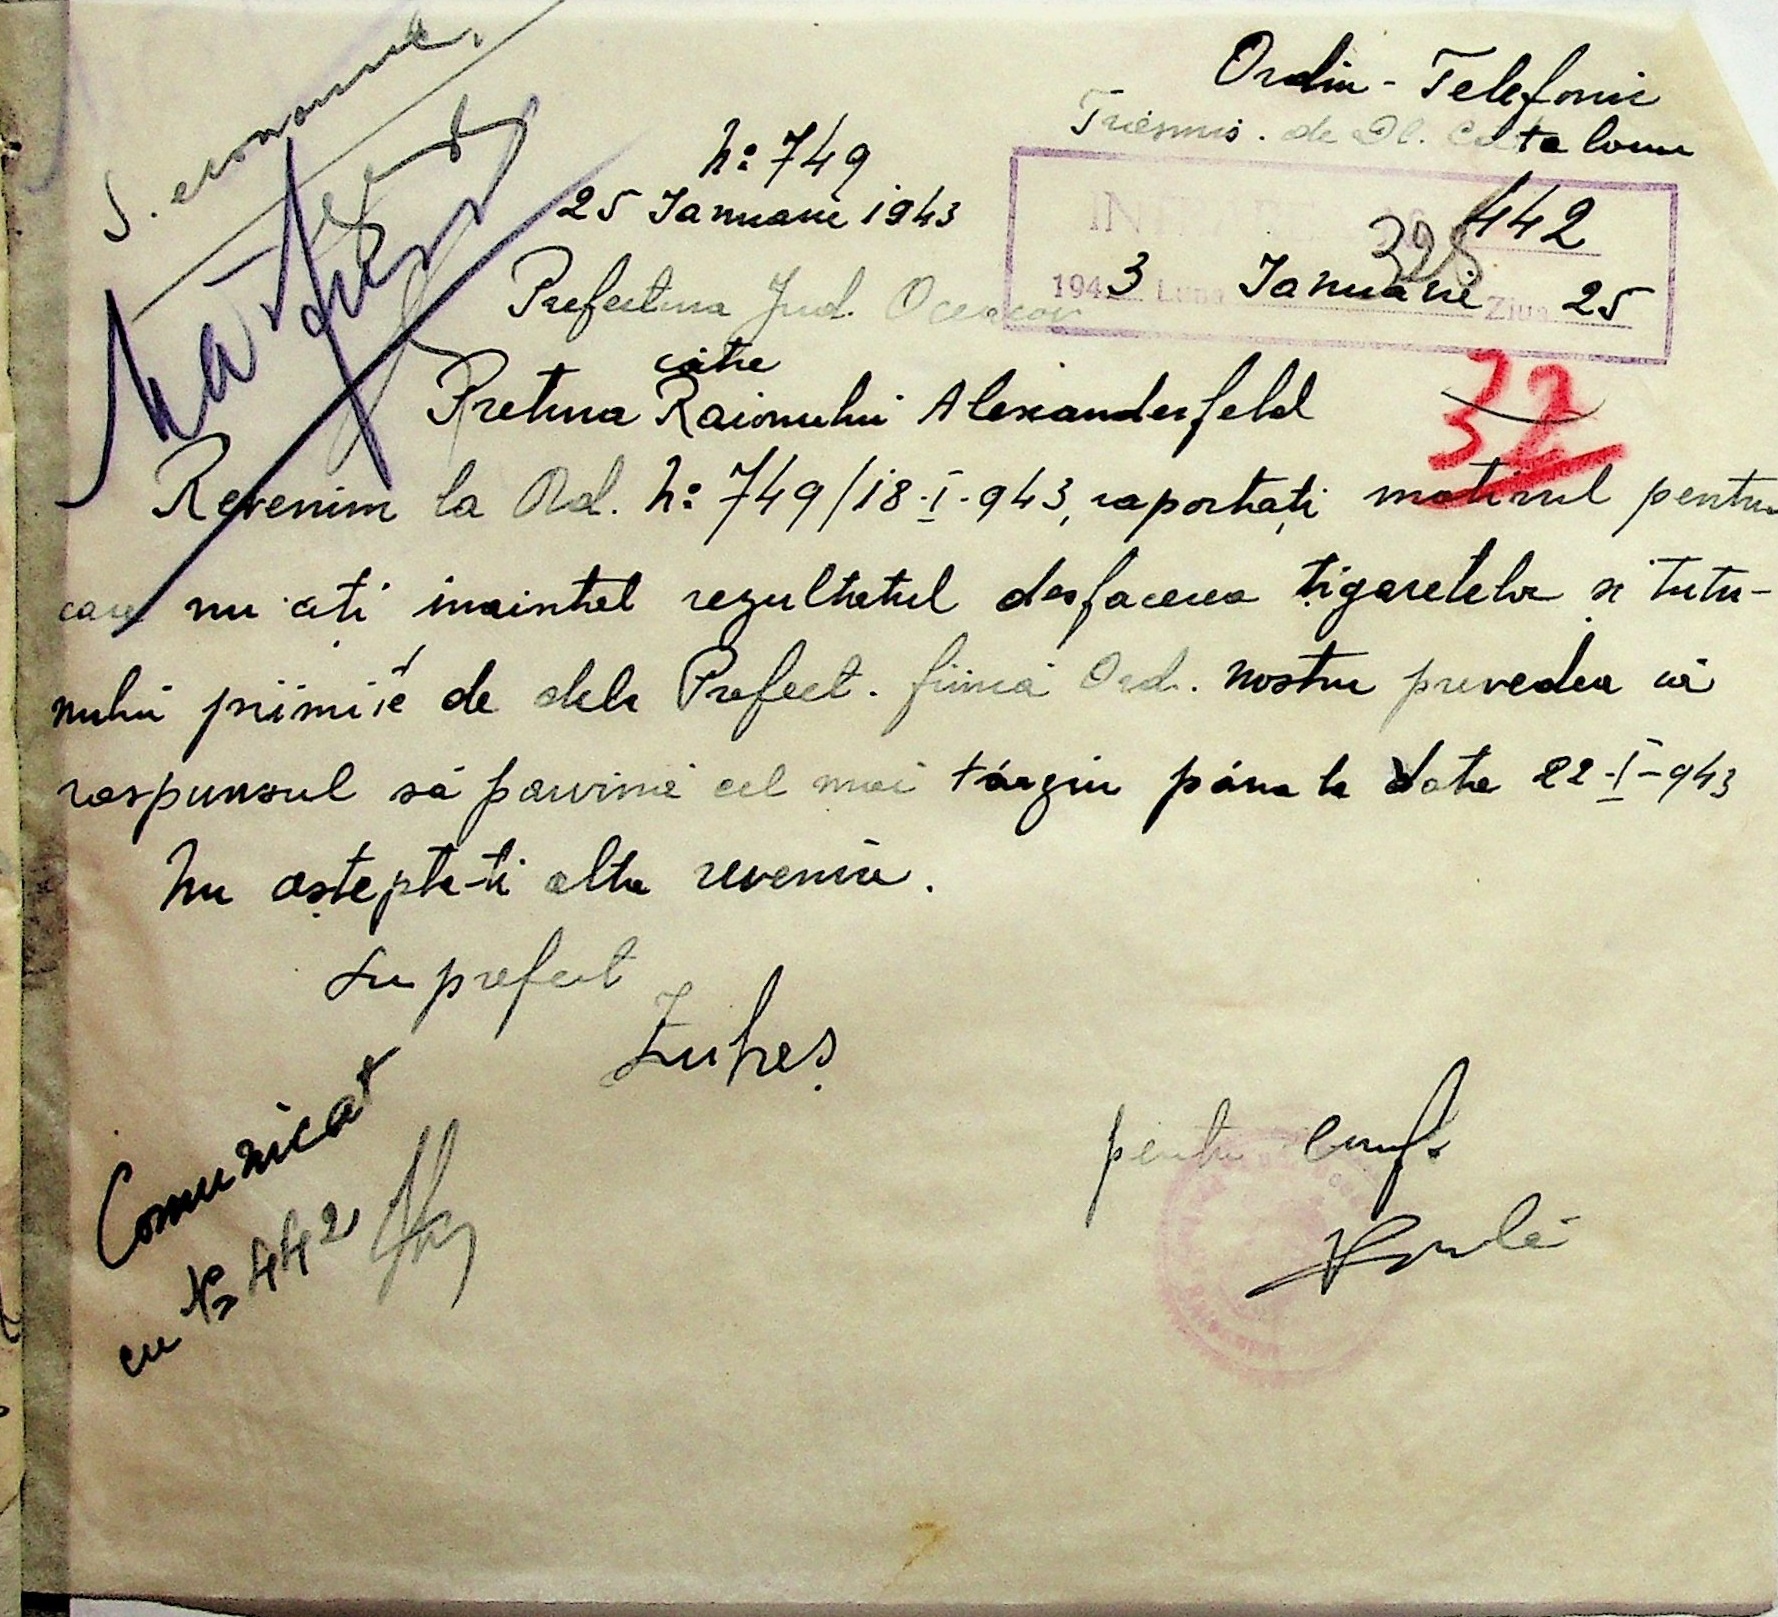 S. economic.
Ordin - Telefonic
Trasmis. de Dl.
No 749
25 Ianuarie 1943
442
398
1943 Luna Ianuarie Ziua 25
Prefectura Jud. Oceacov
către
Pretura Raionului Alexanderfeld
32
Revenim la Ord. No 749/18-I-943, raportați motivul pentru
care nu ați inaintat rezultatul desfacerea țigaretelor si tutu-
nului primite de dela Prefect. fiincă Ord. nostru prevedea că
raspunsul să parvină cel mai târziu pâna la data 22-I-943
Nu așteptа-ti alta revenire.
Suprefect
pentru conf.
Comunicat
cu No 442